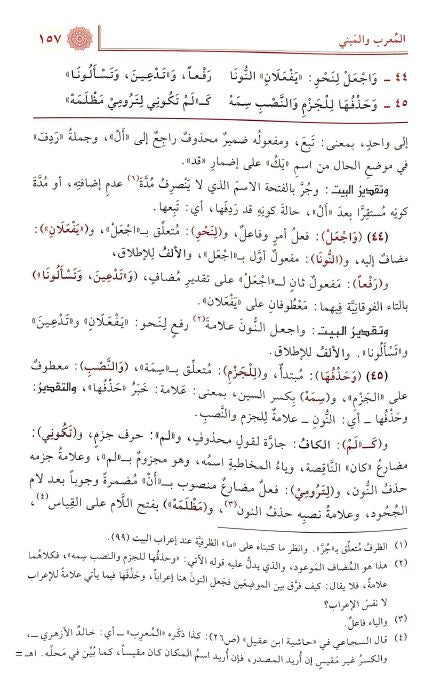 المُعرب والمَبني ١٥٧
٤٤ ـ وَاجْعَلْ لِنَحْوِ: «يَفْعَلَانِ» النُّونَا رَفْعاً، وَ«تَدْعِينَ، وَتَسْأَلُونَا»
٤٥ ـ وَحَذْفُهَا لِلْجَزْمِ وَالنَّصْبِ سِمَهْ كَـ«لَمْ تَكُونِي لِتَرُومِيْ مَظْلَمَهْ»
إلى واحدٍ، بمعنى: تَبِعَ، ومفعولُه ضميرٌ محذوفٌ راجعٌ إلى «أَلْ»، وجملةُ «رَدِفَ»
في موضعِ الحال من اسمِ «يَكُ» على إضمارِ «قد».
وتقديرُ البيت: وجُرَّ بالفتحة الاسمَ الذي لا يَنْصرِفُ مُدَّةَ(١) عدمِ إضافتِه، أو مُدَّةَ
كونِه مُستقِرًّا بعدَ «أَلْ»، حالةَ كونِه قد رَدِفَها، أي: تَبِعها.
(٤٤) (وَاجْعَلْ): فعلُ أمرٍ وفاعلٌ، و(لِنَحْوِ): مُتعلِّق بـ«اجْعَلْ»، و(«يَفْعَلَانِ»):
مضافٌ إليه، و(النُّونَا): مفعولٌ أوَّل بـ«اجعل»، والألفُ للإطلاق،
و(رَفْعاً): مفعولٌ ثانٍ لـ«اجْعَلْ» على تقديرِ مضافٍ، (وَ«تَدْعِينَ، وَتَسْأَلُونَا»)
بالتاء الفوقانيَّة فيهما: مَعْطُوفانِ على «يَفْعَلان».
وتقديرُ البيت: واجعلِ النُّونَ علامةَ(٢) رفعٍ لنَحو: «يَفْعَلانِ» و«تَدْعِينَ»
و«تَسْأَلُونا». والألفُ للإطلاق.
(٤٥) (وَحَذْفُهَا): مُبتدأ، و(لِلْجَزْمِ): مُتعلِّق بـ«سِمَه»، (وَالنَّصْبِ): معطوفٌ
على «الجَزْمِ»، و(سِمَهْ) بكسر السين، بمعنى: عَلامة: خَبَرُ «حَذْفُها»، والتقديرُ:
وحَذْفُها ـ أي: النُّونِ ـ علامةٌ للجزم والنَّصبِ.
و(كَـ«لَمْ»): الكافُ: جارَّة لقولٍ محذوفٍ، و«لم»: حرف جزمٍ، و(تَكُونِي):
مضارعُ «كان» النَّاقِصة، وياءُ المخاطَبةِ اسمُه، وهو مجزومٌ بـ«لم»، وعلامةُ جزمِه
حذف النون، و(لِتَرُومِيْ): فعلٌ مضارعٌ منصوب بـ«أَنْ» مُضمرةً وجوباً بعد لام
الجُحُود، وعلامةُ نصبِه حذفُ النون(٣)، و(مَظْلَمَهْ) بفتح اللَّام على القِياس(٤)،
(١) الظرفُ مُتعلِّق بـ«جُرَّ». وانظر ما كتبناه على «ما» الظرفيَّة عند إعراب البيت (٩٩).
(٢) هذا هو المُضاف المَوعود، والذي يدلُّ عليه قوله الآتي: «وحذفُها للجزم والنصب سِمه»، فكلاهُما
علامةٌ، فلا يقال: كيف فرَّق بين الموضِعَين فجعل النونَ هنا إعراباً، وحَذْفَها فيما يأتي علامةً للإعراب
لا نفسَ الإعراب؟
(٣) والياء فاعلٌ.
(٤) قال السجاعي في «حاشية ابن عقيل» (ص٢٦): كذا ذكَره «المُعرِب» ـ أي: خالدٌ الأزهري ـ،
والكسرُ غير مَقيسٍ إن أُريد المصدر، فإن أُريد اسمُ المكان كان مَقيساً، كما بُيِّن في مَحلِّه. اهـ =